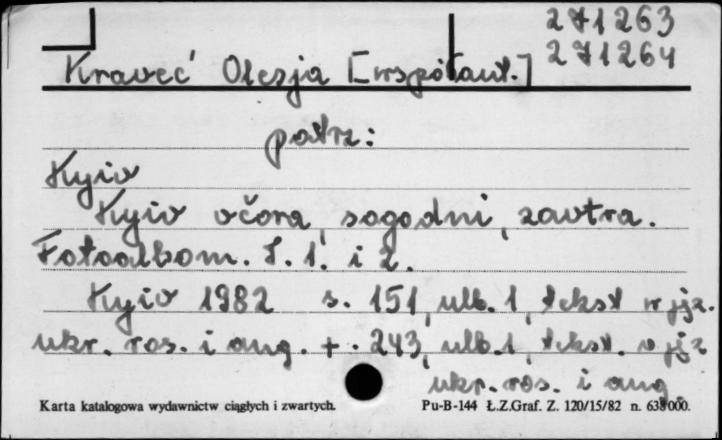 271263
271264
Kraveć Olesja [współaut.]
patrz:
Kyiv
Kyiv včora, sogodni, zavtra.
Fotoalbom. S. 1. i 2.
Kyiv 1982 s. 151, ulb. 1, tekst w jęz.
ukr. ros. i ang. + . 243, ulb. 1, tekst. w jęz
ukr. ros. i ang.
Karta katalogowa wydawnictw ciągłych i zwartych. Pu-B-144 Ł.Z.Graf. Z. 120/15/82 n. 638000.